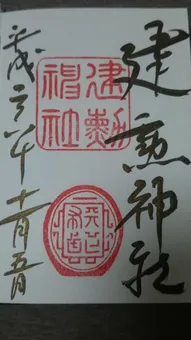 建勲神社
建勲
神社
平成二八年十一月五日